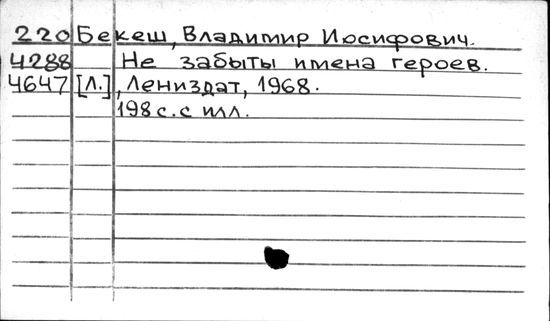 220 Бекеш, Владимир Иосифович.
4288 Не забыты имена героев.
4647 [Л.], Лениздат, 1968.
198 с. с илл.